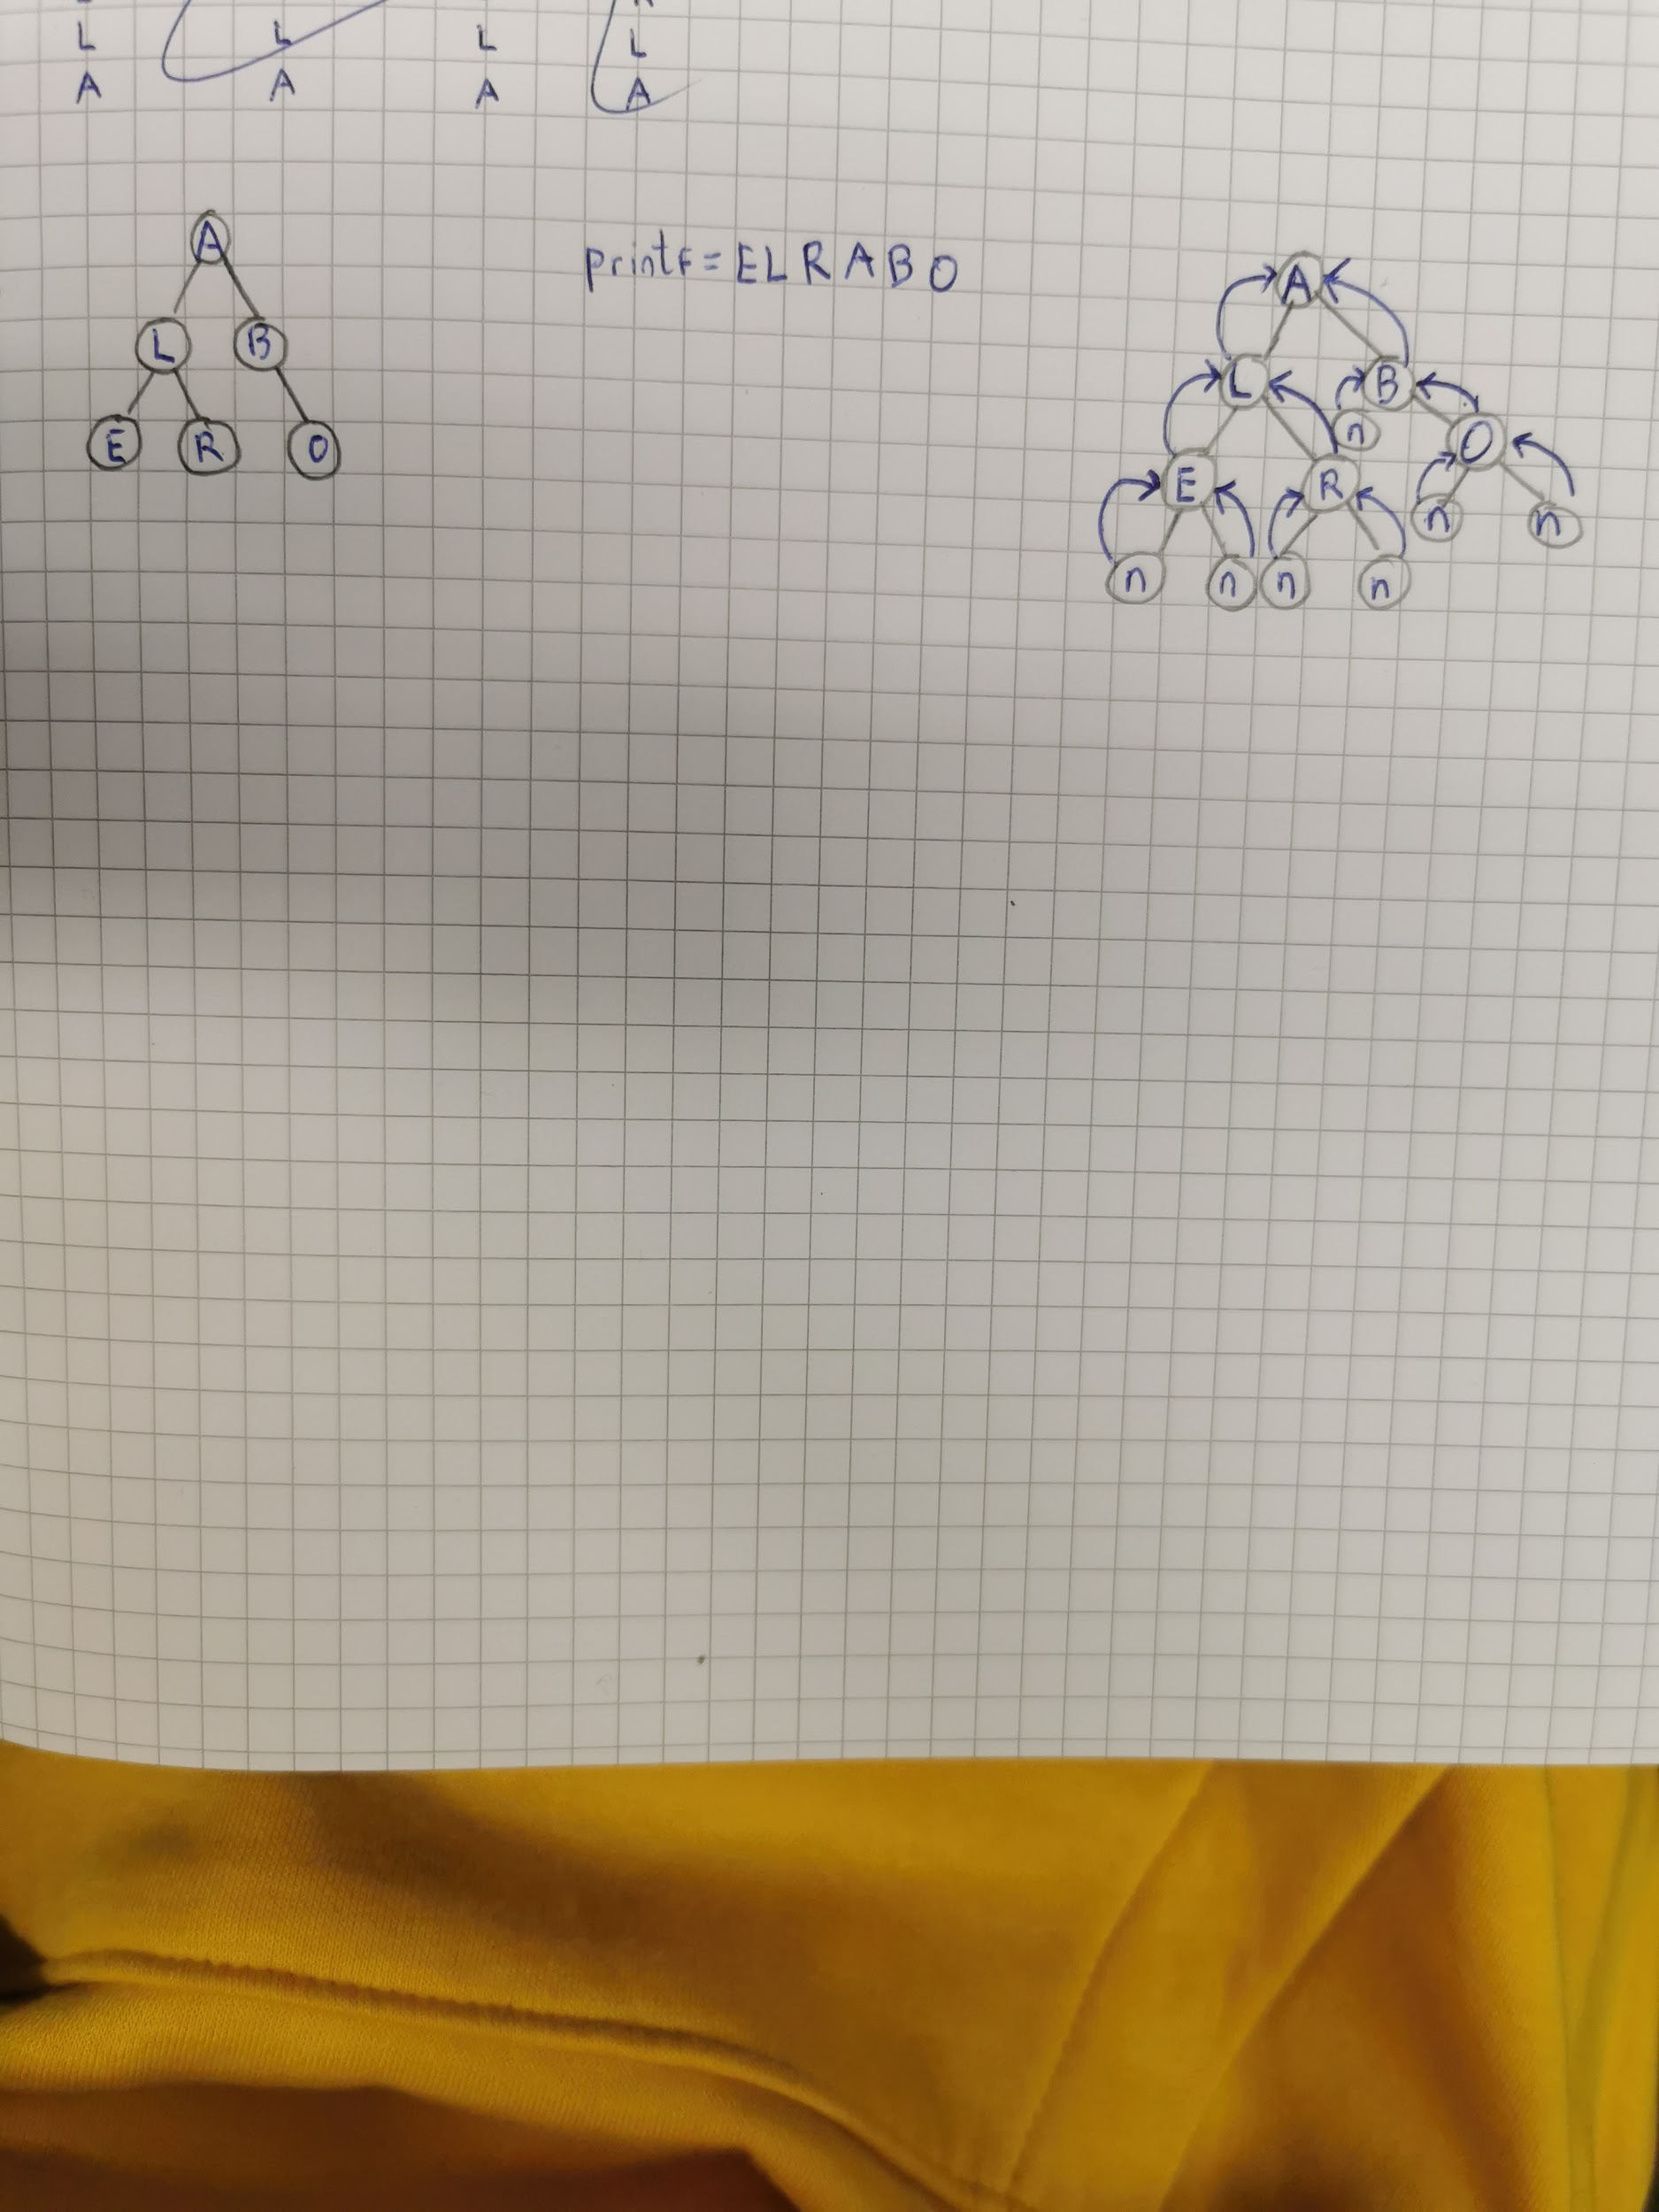 L L L L
A A A A
A
L B
E R O
printf = E L R A B O
A
L B
n
E R O
n n
n n n n